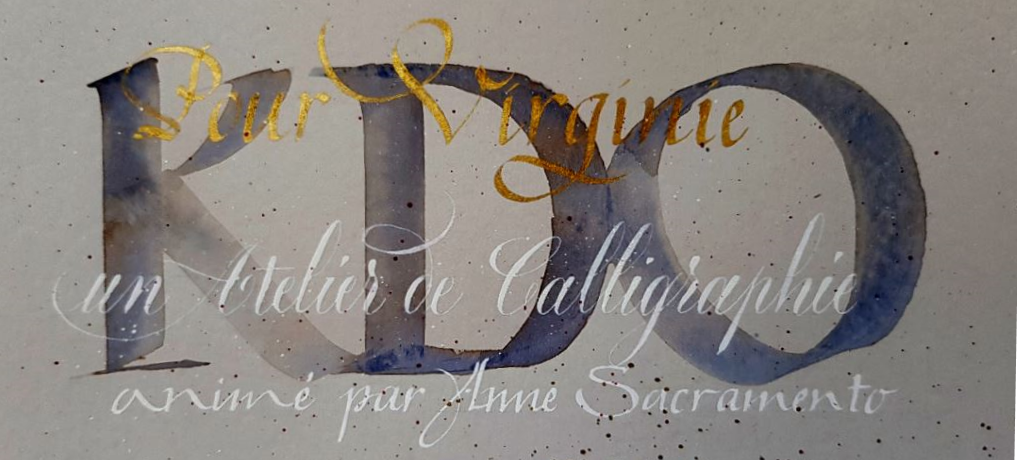 Pour Virginie
KDO
un Atelier de Calligraphie
animé par Anne Sacramento